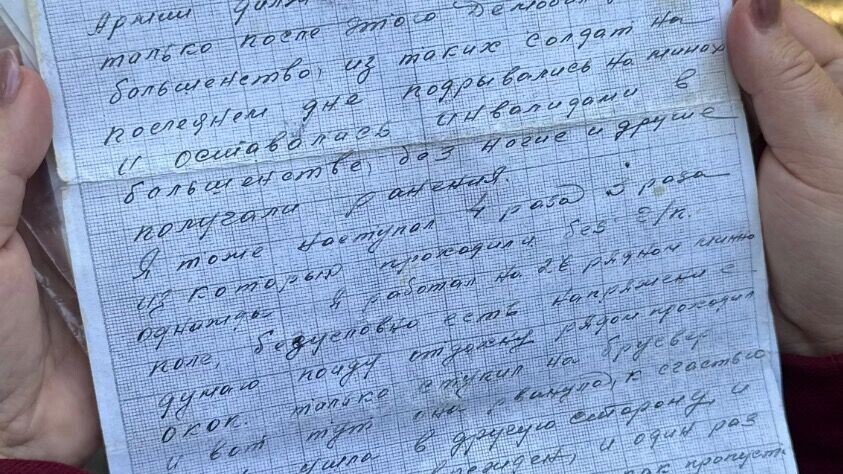 Армии
только после этого демобил
большенство, из таких солдат на
последнем дне подрывались на минах
и оставалось инвалидами в
большенстве, без ногие и другие
получали ранения.
Я тоже наступал 4 раза 3 раза
из которых проходили без
однажды я работал на 2х рядном минно
поле, безусловно есть напряжение
думаю пойду отдохну рядом проходил
окоп. только ступил на бруствер
и вот тут она рванула, к счастью
ушла в другую сторону и
и один раз
пропуст